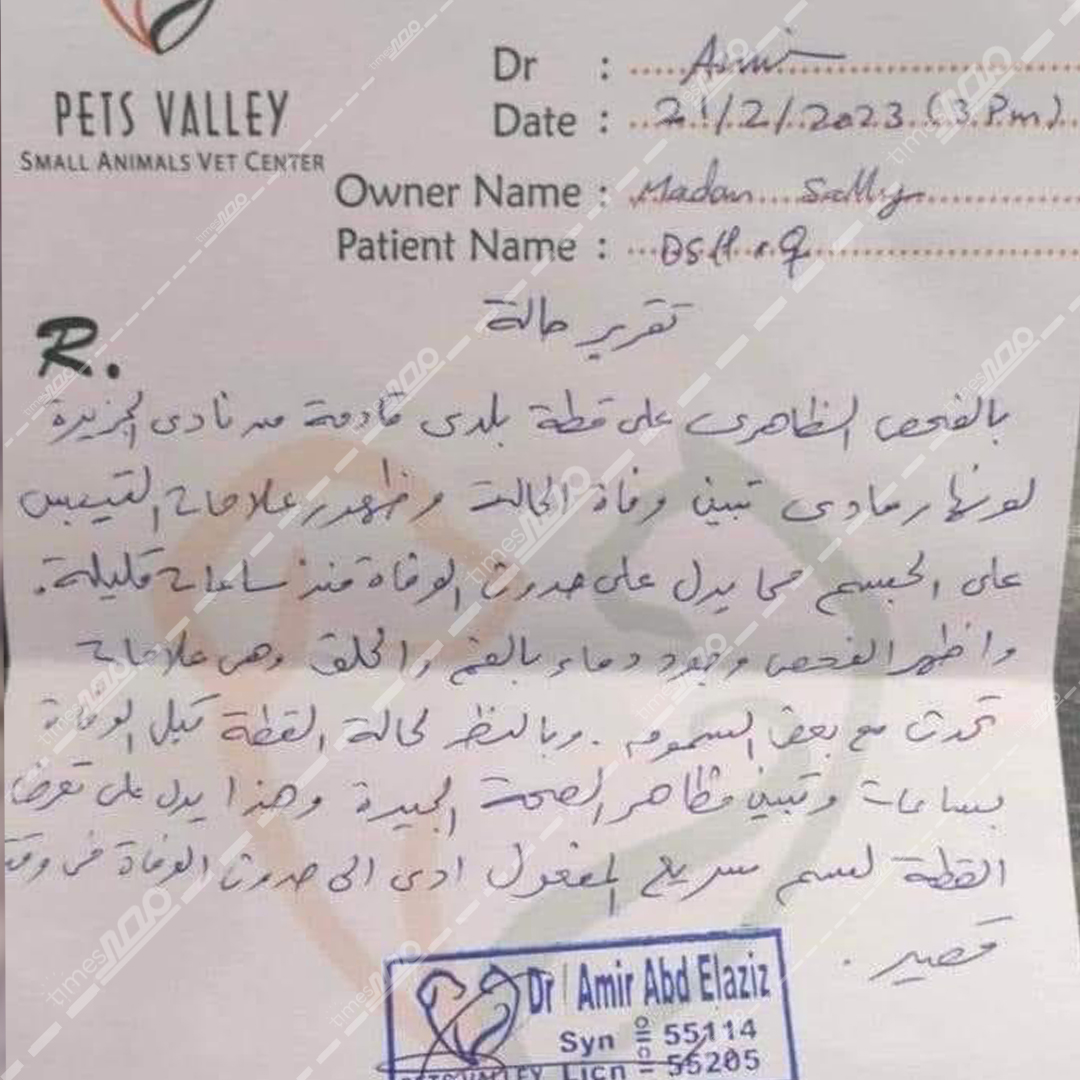 PETS VALLEY
SMALL ANIMALS VET CENTER
Dr : Amir
Date : 21/2/2023 (3 Pm)
Owner Name : Madam Sally
Patient Name : DSH . ♀
R.
تقرير حالة
بالفحص الظاهرى على قطة بلدى قادمة من نادى الجزيرة
لونها رمادى تبين وفاة الحالة وظهور علامات التيبس
على الجسم مما يدل على حدوث الوفاة منذ ساعات قليلة.
واظهر الفحص وجود دماء بالفم والحلق وهى علامات
تحدث مع بعض السموم . وبالنظر لحالة القطة قبل الوفاة
بساعات وتبين مظاهر الصحة الجيدة وهذا يدل على تعرض
القطة لسم سريع المفعول ادى الى حدوث الوفاة فى وقت
قصير .
Dr / Amir Abd Elaziz
Syn № 55114
PETS VALLEY Licn № 55205
timesمصر